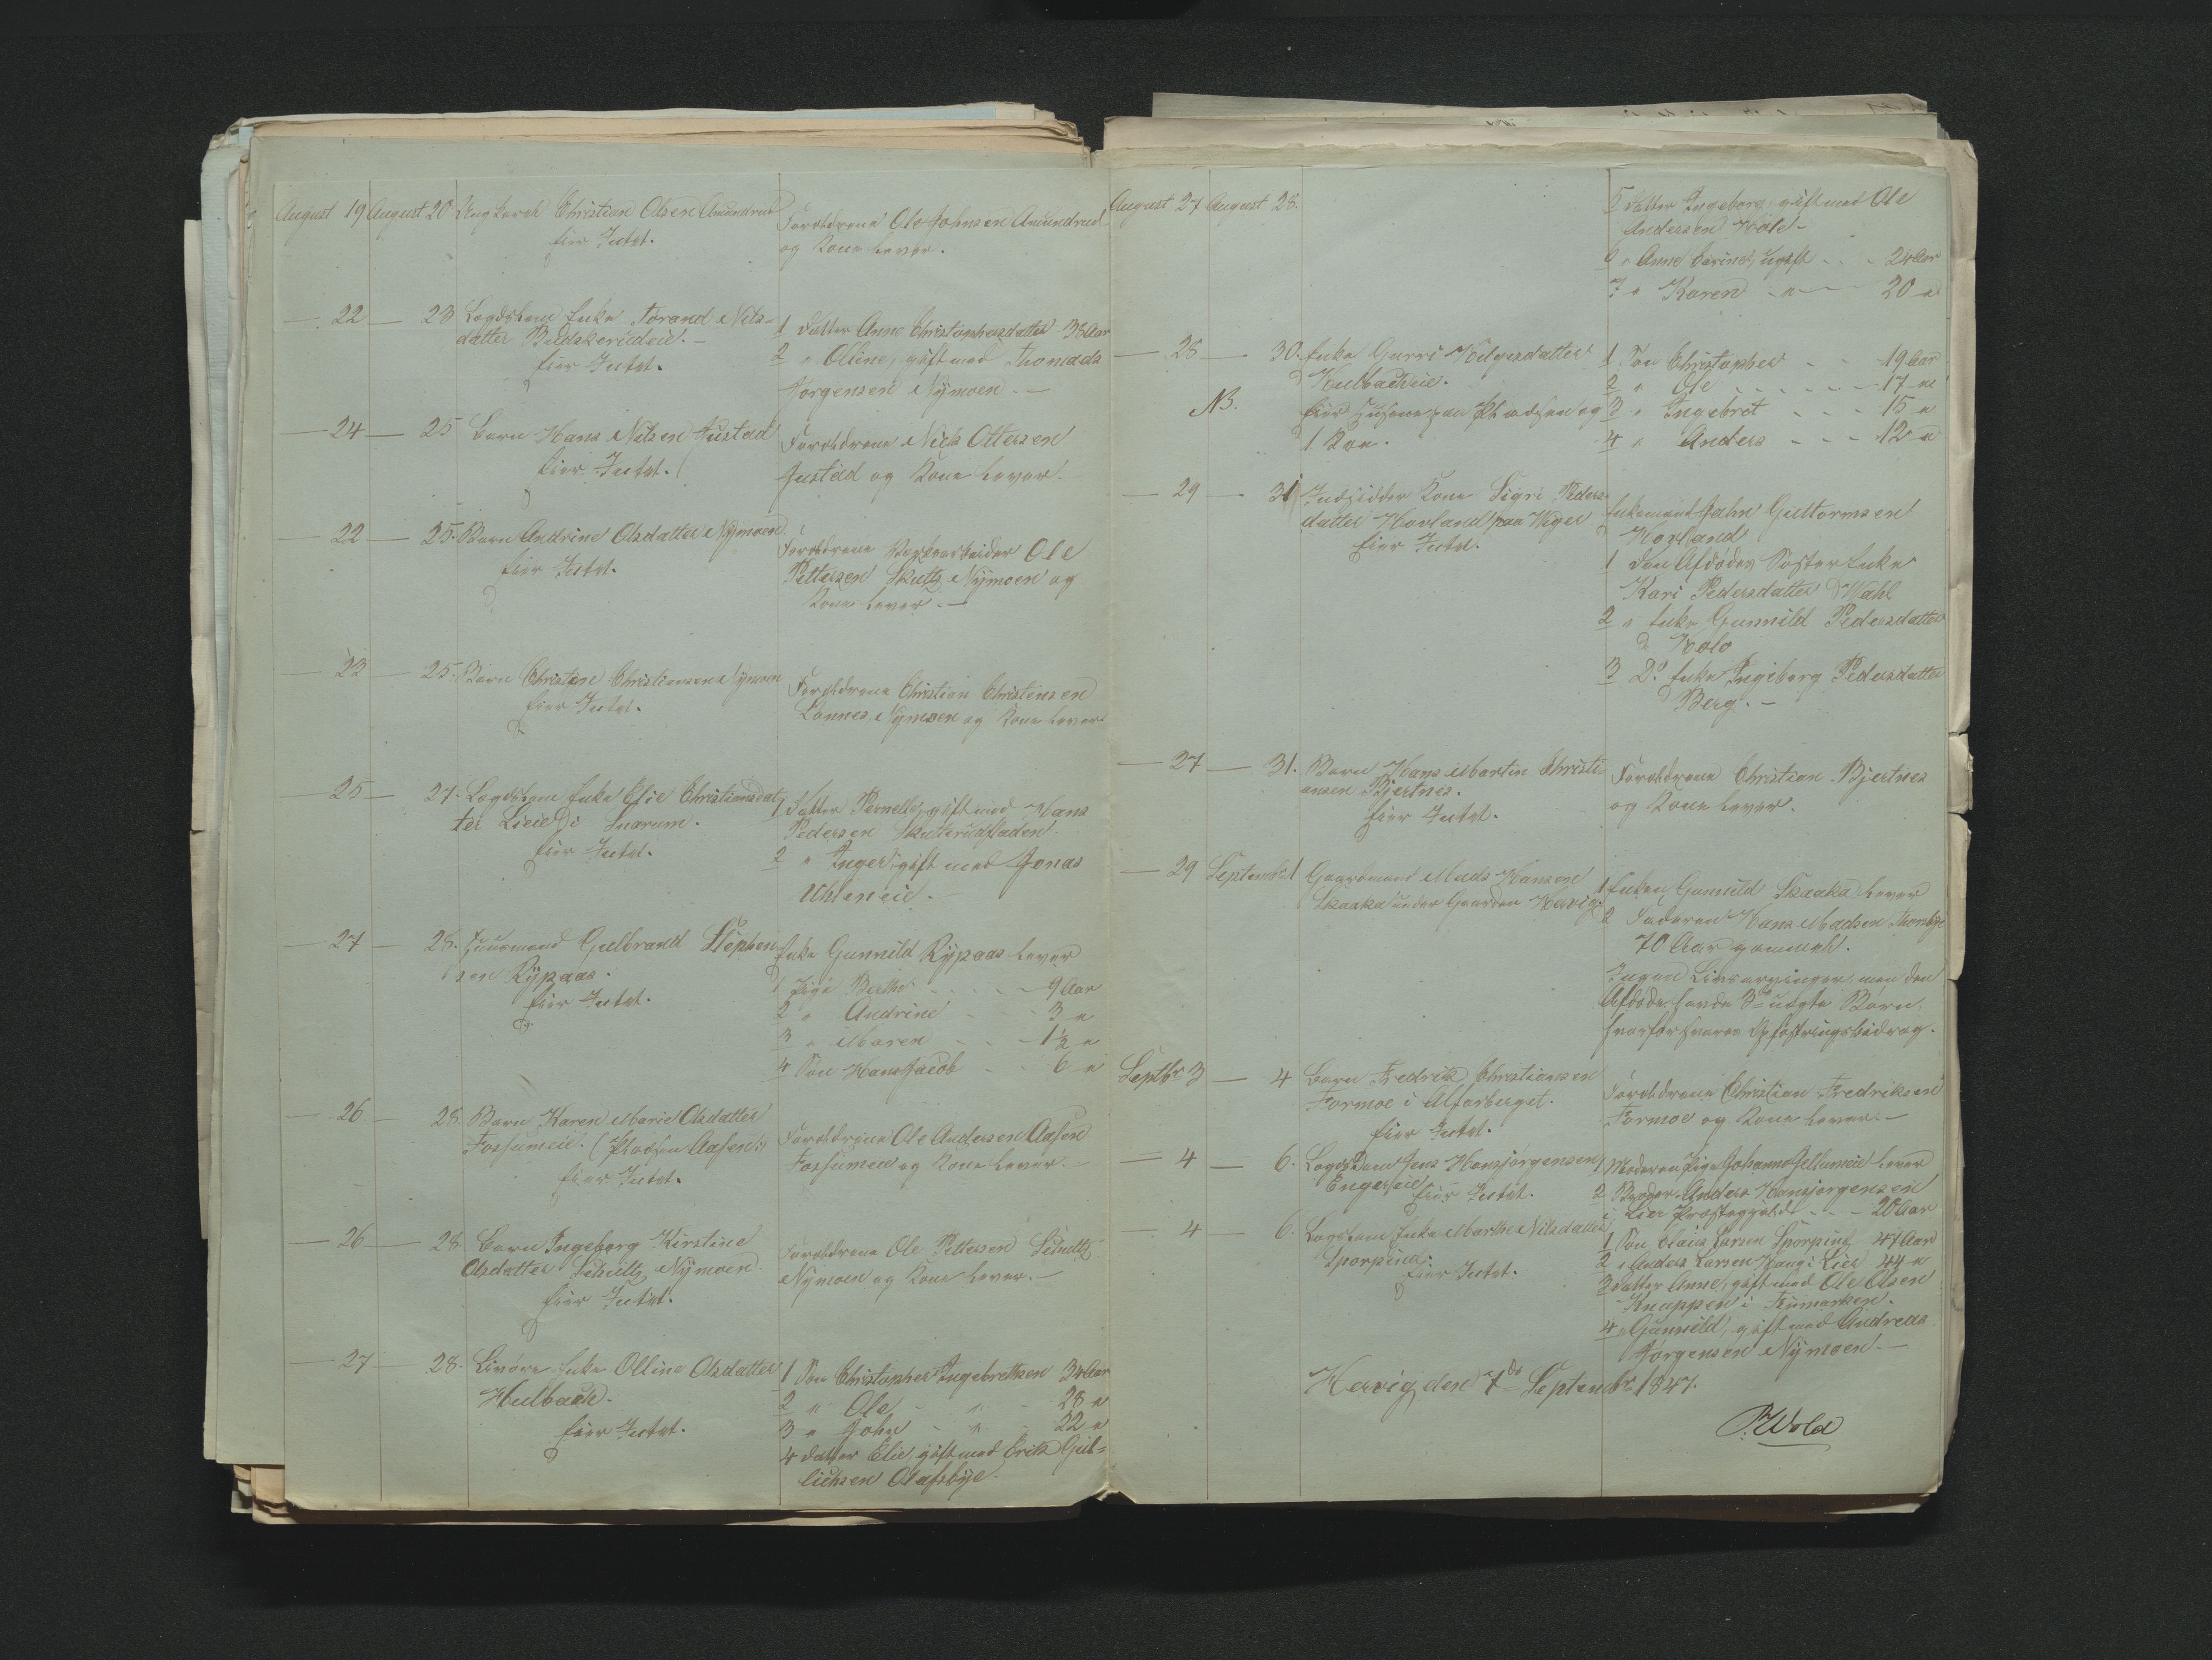 August 19 August 20 Ungkarl Christian Olsen Amundrud
eier Intet.
Forældrene Ole Johnsen Amundrud
og Kone lever.
— 22 — 23 Lægdslem Enke Torand Nils-
datter
eier Intet.
1 Datter Anne Christophersdatter 38 Aar
2 " Olline, gift med Thomads
Jørgensen Nymoen. —
— 24 — 25 Barn Hans Nilsen Justad
eier Intet.
Forældrene Niels Ottersen
Justad og Kone lever.
— 22 — 25. Barn Andrine Olsdatter Nymoen
eier Intet.
Forældrene Ole
Pettersen Skultz Nymoen og
Kone lever. —
— 23 — 25. Barn Christian Christiansen Nymoen
eier Intet.
Forældrene Christian Christensen
Nymoen og Kone lever
— 25 — 27. Lægdslem Enke Elie Christiansdat-
ter Lieeie i Snarum.
eier Intet.
1 Datter Pernelle, gift med Hans
Pedersen Skuterudfladen.
2 " Inger, gift med Jonas
Uhleneie. —
— 27 — 28. Huusmand Gulbrand Stephen-
sen Rypaas.
eier Intet.
Enke Gunnild Rypaas lever
1 Pige Berthe - - - - 9 Aar
2 " Andrine - - - 3 "
3 " Maren - - - 1½ "
4 Søn Hans Jacob - - 6 "
— 26 — 28. Barn Karen Marie Olsdatter
Fossumeie. (Pladsen Aasen)
eier Intet.
Forældrene Ole Andersen Aasen
Fossumeie og Kone lever. —
— 26 — 28. Barn Ingeborg Kirstine
Olsdatter Schultz Nymoen.
eier Intet.
Forældrene Ole Pettersen Schultz
Nymoen og Kone lever. —
— 27 — 28. Enke Olline Olsdatter
Hulbach.
eier Intet.
1 Søn Christopher Ingebretsen 34 Aar
2 " Ole - " - 28 "
3 " John - " - 22 "
4 Datter Elie, gift med Erik Gul-
lichsen Olafsbye.
August 27 August 28.
5 Datter Ingeborg, gift med Ole
Andersen
6 " Anne Carine, ugift - - - 24 Aar
7 " Karen - " - 20 "
— 28 — 30. Enke Gurri Helgesdatter
Hulbacheie.
NB. eier Husene paa Pladsen og
1 Koe.
1 Søn Christopher - - 19 Aar
2 " Ole - - - - - 17 "
3 " Ingebret - - - 15 "
4 " Anders - - - 12 "
— 29 — 31 Indsidder Kone Sigri Peders-
datter Hovland paa
eier Intet.
Enkemand John Guttormsen
Hovland
1 den Afdødes Søster Enke
Kari Pedersdatter Wahl
2 " Enke Gunnild Pedersdatter
3 Do Enke Ingeborg Pedersdatter
Berg. —
— 27 — 31. Barn Hans Martin Christi-
ansen Bjertnes.
eier Intet.
Forældrene Christian Bjertnes
og Kone lever.
— 29 September 1 Gaardmand Mads Hansen
Skaaka under Gaarden Hærvig.
1 Enken Gunnild Skaaka lever
2 Faderen Hans Madsen
70 Aar gammel.
Ingen Livsarvinger, men den
Afdøde havde 3de uægte Børn,
hvorfor svares Opfostringsbidrag.
Septbr 3 — 4 Barn Fredrik Christiansen
Formoe i
eier Intet.
Forældrene Christian Fredriksen
Formoe og Kone lever. —
— 4 — 6. Lægdslem Jens Hansjørgensen
Engerseie
eier Intet.
1 Moderen Pige Johanne lever
2 Broder Anders Hansjørgensen
i Lier Præstegjeld - - - 20 Aar
— 4 — 6. Lægdslem Enke Marthe Nilsdatter
eier Intet.
1 Søn Larsen 47 Aar
2 " Anders Larsen Haug i Lier 44 "
3 Datter Anne, gift med Ole Olsen
Knappen i Finmarken.
4 " Gunnild, gift med Andreas
Jørgensen Nymoen. —
Hærvig den 7de Septembr 1847.
Wold